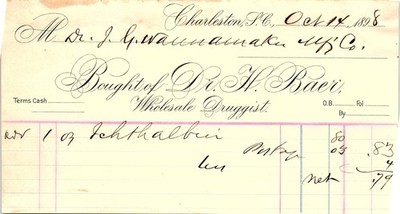 Charleston, S.C. Oct 14 1898
M Dr. J. G. Wannamaker Mfg Co.
Bought of Dr. H. Baer,
Terms Cash Wholesale Druggist. O.B. Fol
By
1 oz Ichthalbin 80
Postage 03 .83
Less 4
net .79